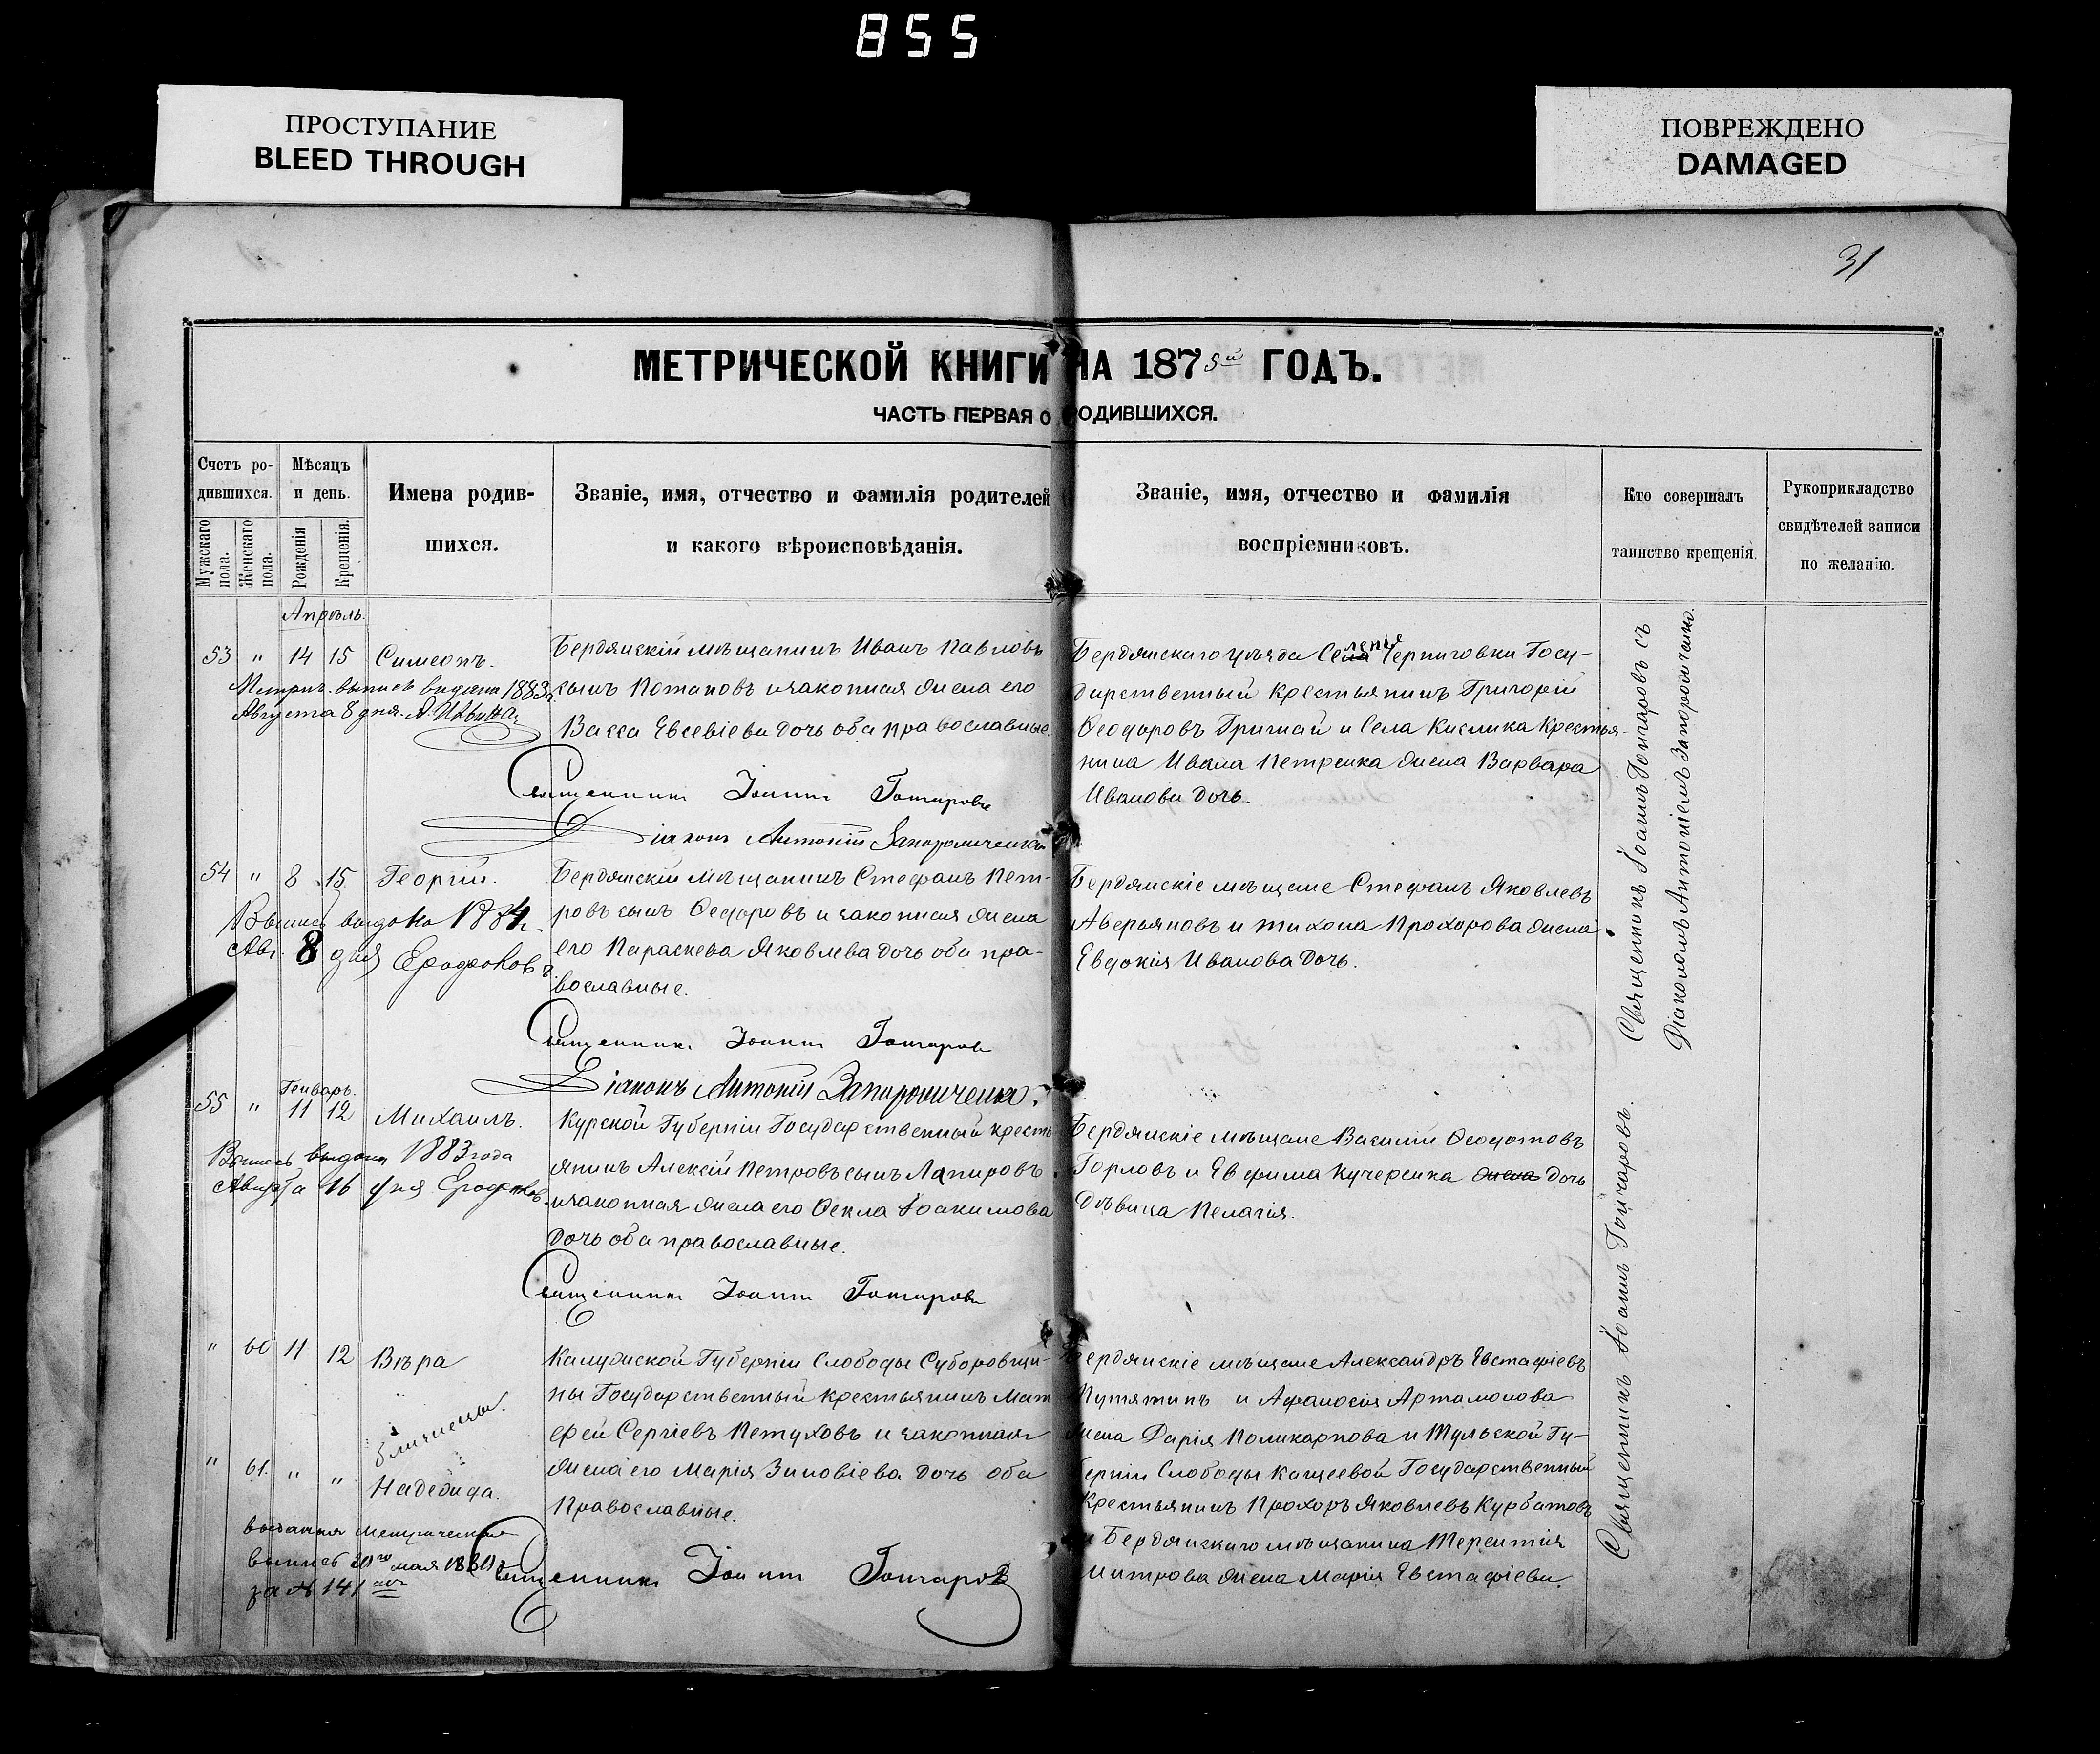 855
ПРОСТУПАНИЕ
BLEED THROUGH
ПОВРЕЖДЕНО
DAMAGED
31
МЕТРИЧЕСКОЙ КНИГИ НА 1875й ГОДЪ.
ЧАСТЬ ПЕРВАЯ О РОДИВШИХСЯ.
Счетъ ро-
дившихся.
Мужскаго пола.
Женскаго пола.
Мѣсяцъ
и день.
Рожденія
Крещенія.
Имена родив-
шихся.
Званіе, имя, отчество и фамилія родителей
и какого вѣроисповѣданія.
Званіе, имя, отчество и фамилія
воспріемниковъ.
Кто совершалъ
таинство крещенія.
Рукоприкладство
свидѣтелей записи
по желанію.
Апрѣль.
53 " 14 15 Симеонъ.
Метрич. выпись выдана 1883г.
Августа 8 дня.
Бердянскій мѣщанинъ Иванъ Павловъ
сынъ Потаповъ и законная жена его
Васса Евсевіева дочь оба православные.
Священникъ Іоаннъ Гончаровъ
Діаконъ Антоній Запорожченко
Бердянскаго уѣзда Селенія Черниговки Госу-
дарственный крестьянинъ Григорій
Ѳеодоровъ Гришай и Села Кислика Крестья-
нина Ивана Петренка жена Варвара
Иванова дочь.
54 " 8 15 Георгій.
Выпись выдана 1884
Авг. 8 дня Ерофѣковъ
Бердянскій мѣщанинъ Стефанъ Пет-
ровъ сынъ Ѳедоровъ и законная жена
его Параскева Яковлева дочь оба пра-
вославные.
Священникъ Іоаннъ Гончаровъ
Діаконъ Антоній Запорожченко.
Бердянскіе мѣщане Стефанъ Яковлевъ
Аверьяновъ и Тихона Прохорова жена
Евдокія Иванова дочь.
Генварь.
55 " 11 12 Михаилъ.
Выпись выдана 1883 года
Августа 16 дня
Курской Губерніи Государственный кресть
янинъ Алексій Петровъ сынъ Лапировъ
и законная жена его Ѳекла Іоакимова
дочь оба православные.
Священникъ Іоаннъ Гончаровъ
Бердянскіе мѣщане Василій Ѳеодотовъ
Горловъ и Евфима Кучеренка жена дочь
Дѣвица Пелагія.
" 60 11 12 Вѣра
близнецы.
" 61. " " Надежда.
выдана метрическая
выпись мая
за № 141
Калужской Губерніи Слободы Суборовщи-
ны Государственный крестьянинъ Мат
ѳей Сергіевъ Петуховъ и законная
жена его Марія Зиновіева дочь оба
Православные.
Священникъ Іоаннъ Гончаровъ
Бердянскіе мѣщане Александръ Евстафіевъ
Путятинъ и Афанасія Артамонова
жена Дарія Поликарпова и Тульской Гу-
берніи Слободы Кащеевой Государственный
Крестьянинъ Прохоръ Яковлевъ Курбатовъ
и Бердянскаго мѣщанина Терентія
Митрова жена Марія Евстафіева.
Священникъ Іоаннъ Гончаровъ съ
Діакономъ Антоніемъ Запорожченко.
Священникъ Іоаннъ Гончаровъ.